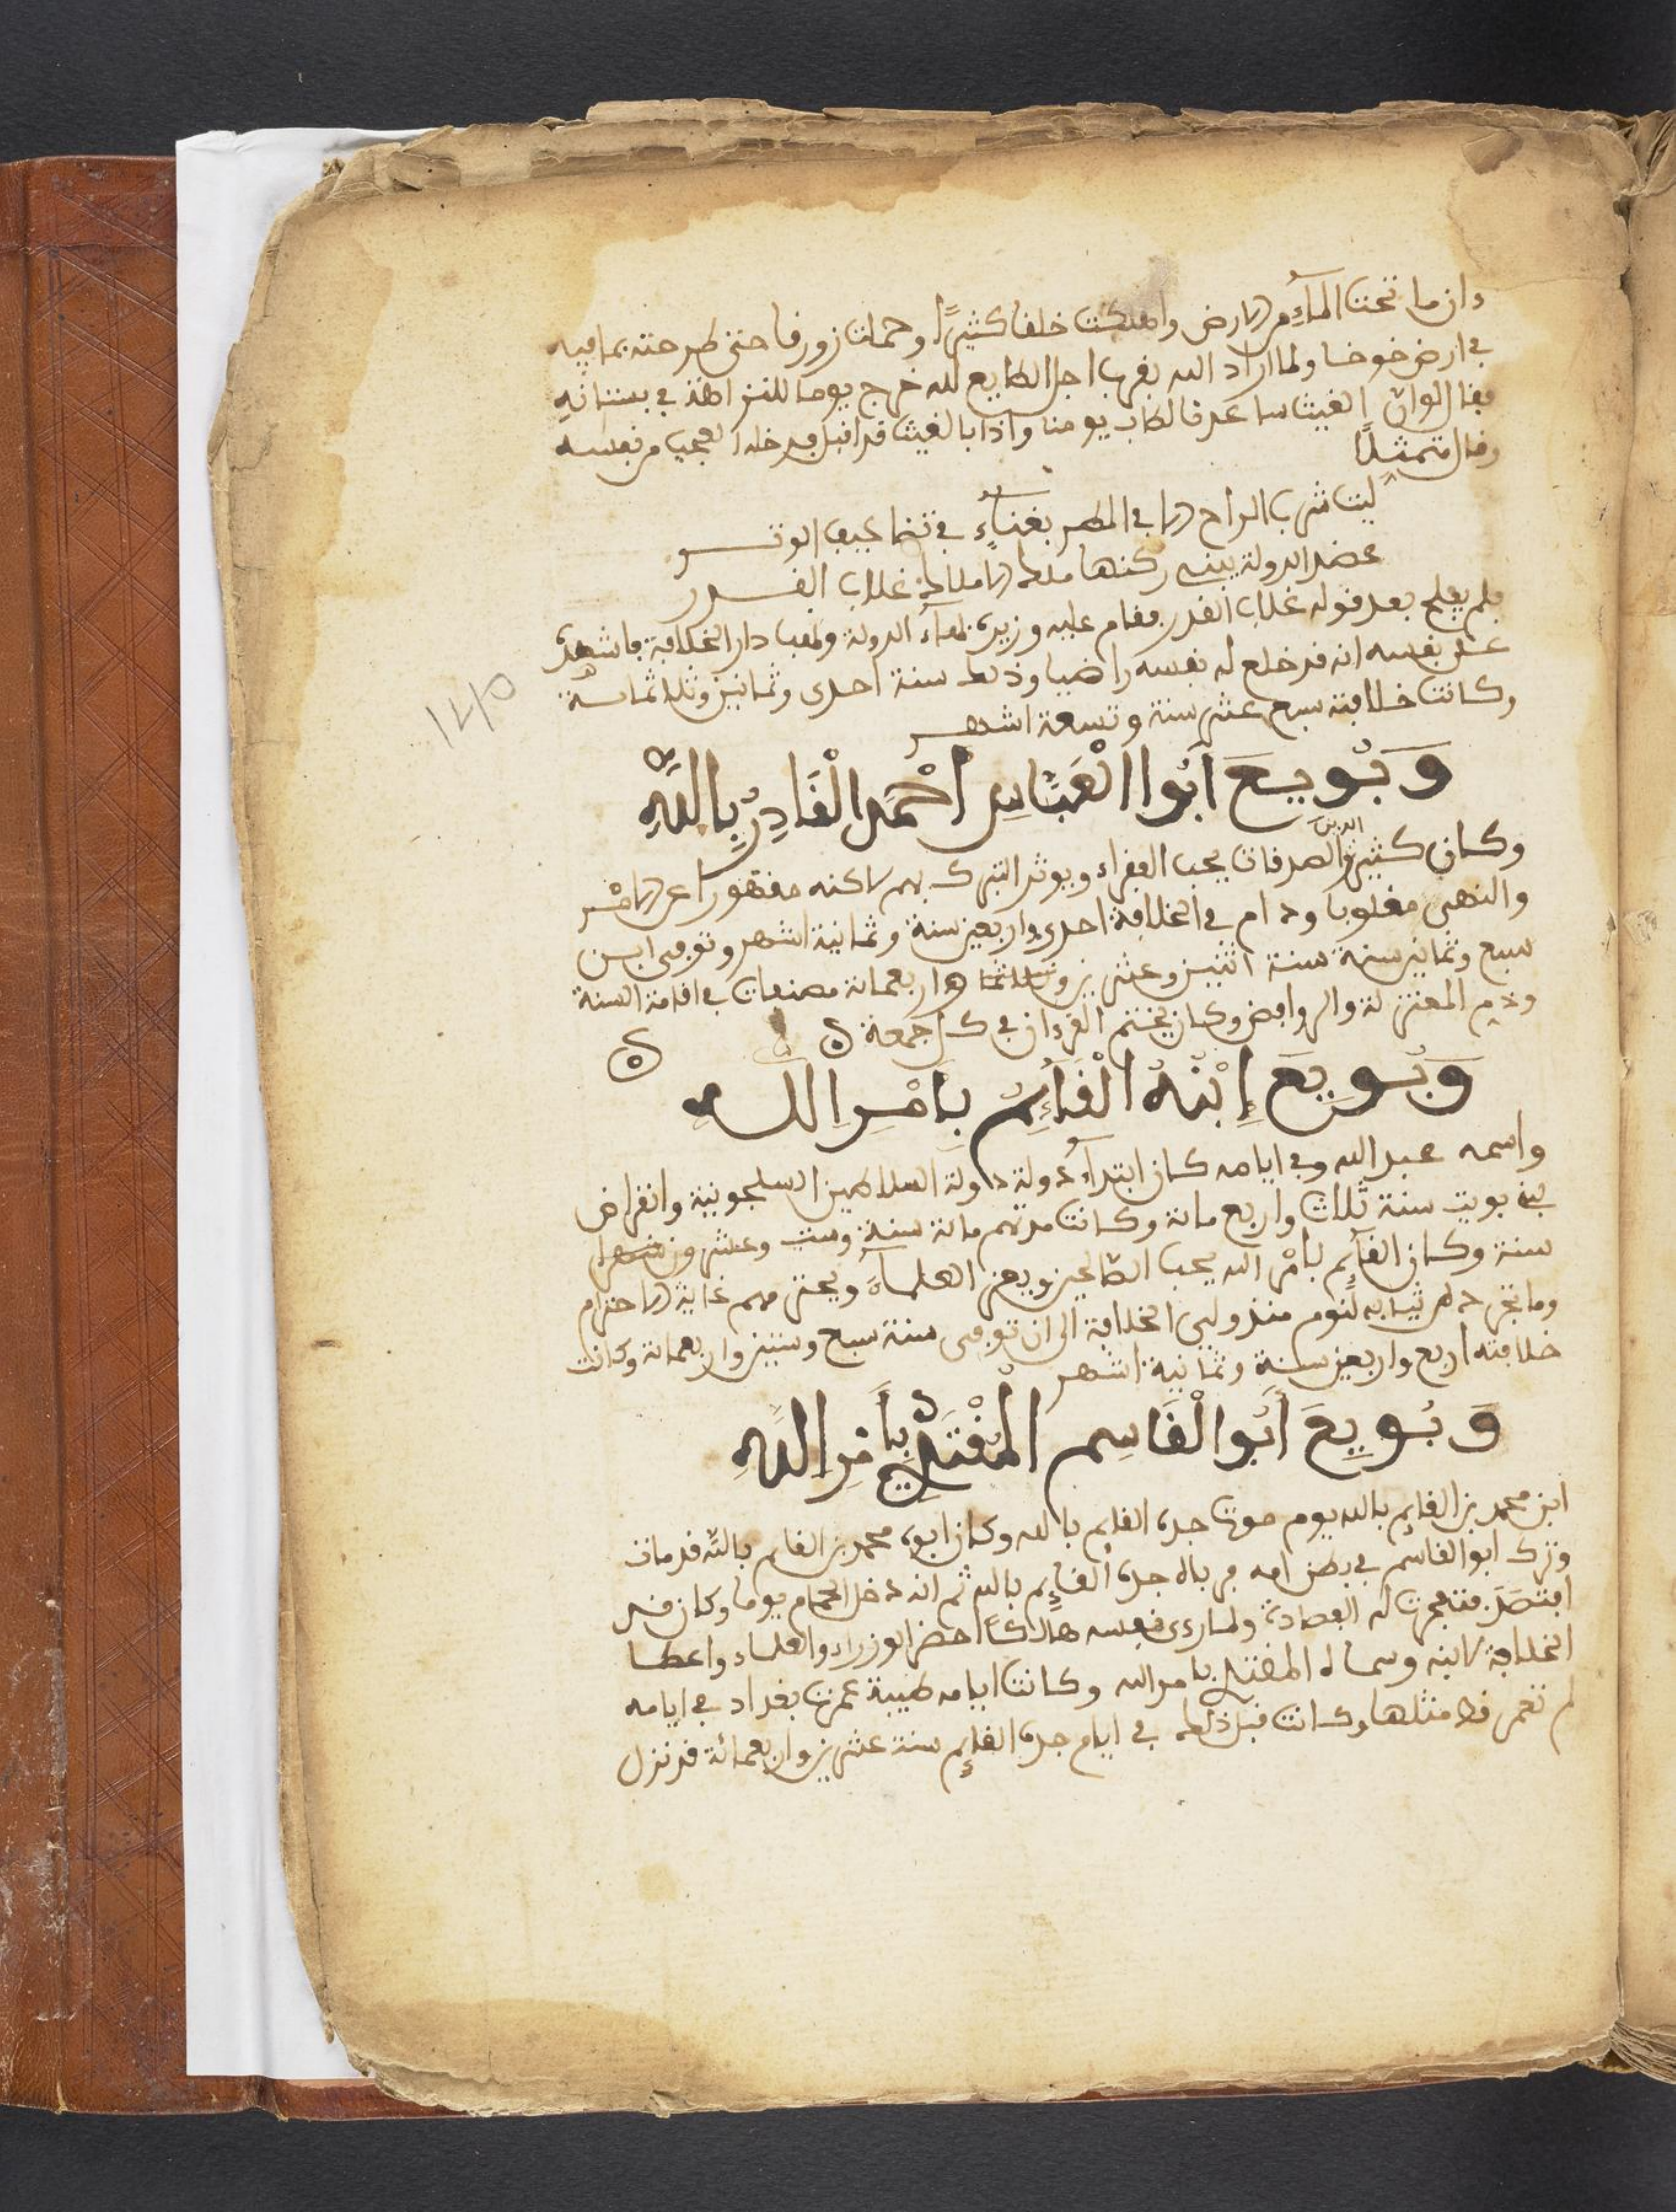 بان ما تحت الماء من الارض واهلكت خلفا كثيرًا وحملت زورقا حتى طرحته بما فيه
في ارض خوخا ولما اراد الله بقرب اجل الطايع لله خرج يوما للنزاهة في بستانه
فقال لوان الغيث ساعدنا لطاب يومنا واذا بالغيث قد اقبل فدخله العجب من نفسه
وقال متمثلًا
ليت شرب الراح الا في المطر بغناءٍ في تضاعيف الوتر
عضد الدولة يبني ركنها ملك الاملاك غلاب القدر
فلم يفلح بعد قوله غلاب القدر فقام عليه وزيره بهاء الدولة ونهب دار الخلافة فاشهده
على نفسه انه قد خلع له نفسه راضيا وذلك سنة احدى وثمانين وثلاثمائة
وكانت خلافته سبع عشر سنة وتسعة اشهر
١٢١٥
وَبُويِعَ أَبُوا الْعَبَّاسِ أَحْمَد الْقَادِرُ بِاللَّهِ
وكان كثير الدين والصدقات يحب الفقراء ويوثر التبرك بهم لاكنه مقهورا عن الامر
والنهى مغلوبا ودام في الخلافة احدى واربعين سنة وثمانية اشهر وتوفي ابن
سبع وثمانين سنة سنة اثنين وعشرين وثلاثما واربعمائة مصنفات في اقامة السنة
وذم المعتزلة والروافض وكان يختم القرءان في كل جمعة ه
ه
وَبُويِعَ إِبْنُهُ الْقَائِمُ بِأَمْرِ اللَّه
واسمه عبد الله وفي ايامه كان ابتداء دولة دولة السلاطين السلجوقية وانقراض
بني بويت سنة ثلاث واربع مائة وكانت مدتهم مائة سنة وست وعشرون شهرا
سنة وكان القائم بامر الله يحب الصالحين ويعز العلماءَ ويحترمهم غاية الاحترام
وما تجرد من ثيابه لنوم منذ ولي الخلافة الى ان توفي سنة سبع وستين واربعمائة وكانت
خلافته اربع واربعين سنة وثمانية اشهر
وَبُويِعَ أَبُو الْقَاسِم الْمُقْتَدِي بِأَمْرِ اللَّهِ
ابن محمد بن القايم بالله يوم موت جده القايم بالله وكان ابوه محمد بن القايم بالله قد مات
وترك ابو القاسم في بطن امه فرباه جده القايم بالله ثم انه دخل الحمام يوما وكان قد
افتصَدَ فتفجرت له الفصادة ولما رءى نفسه هالكًا احضر الوزراء والعلماء واعطا
الخلافة لابنه وسماه المقتدي بامر الله وكانت ايامه طيبة عمرت بغداد في ايامه
لم تعمر قط مثلها وكانت قبل ذلك في ايام جده القايم سنة عشرين واربعمائة قد نزل